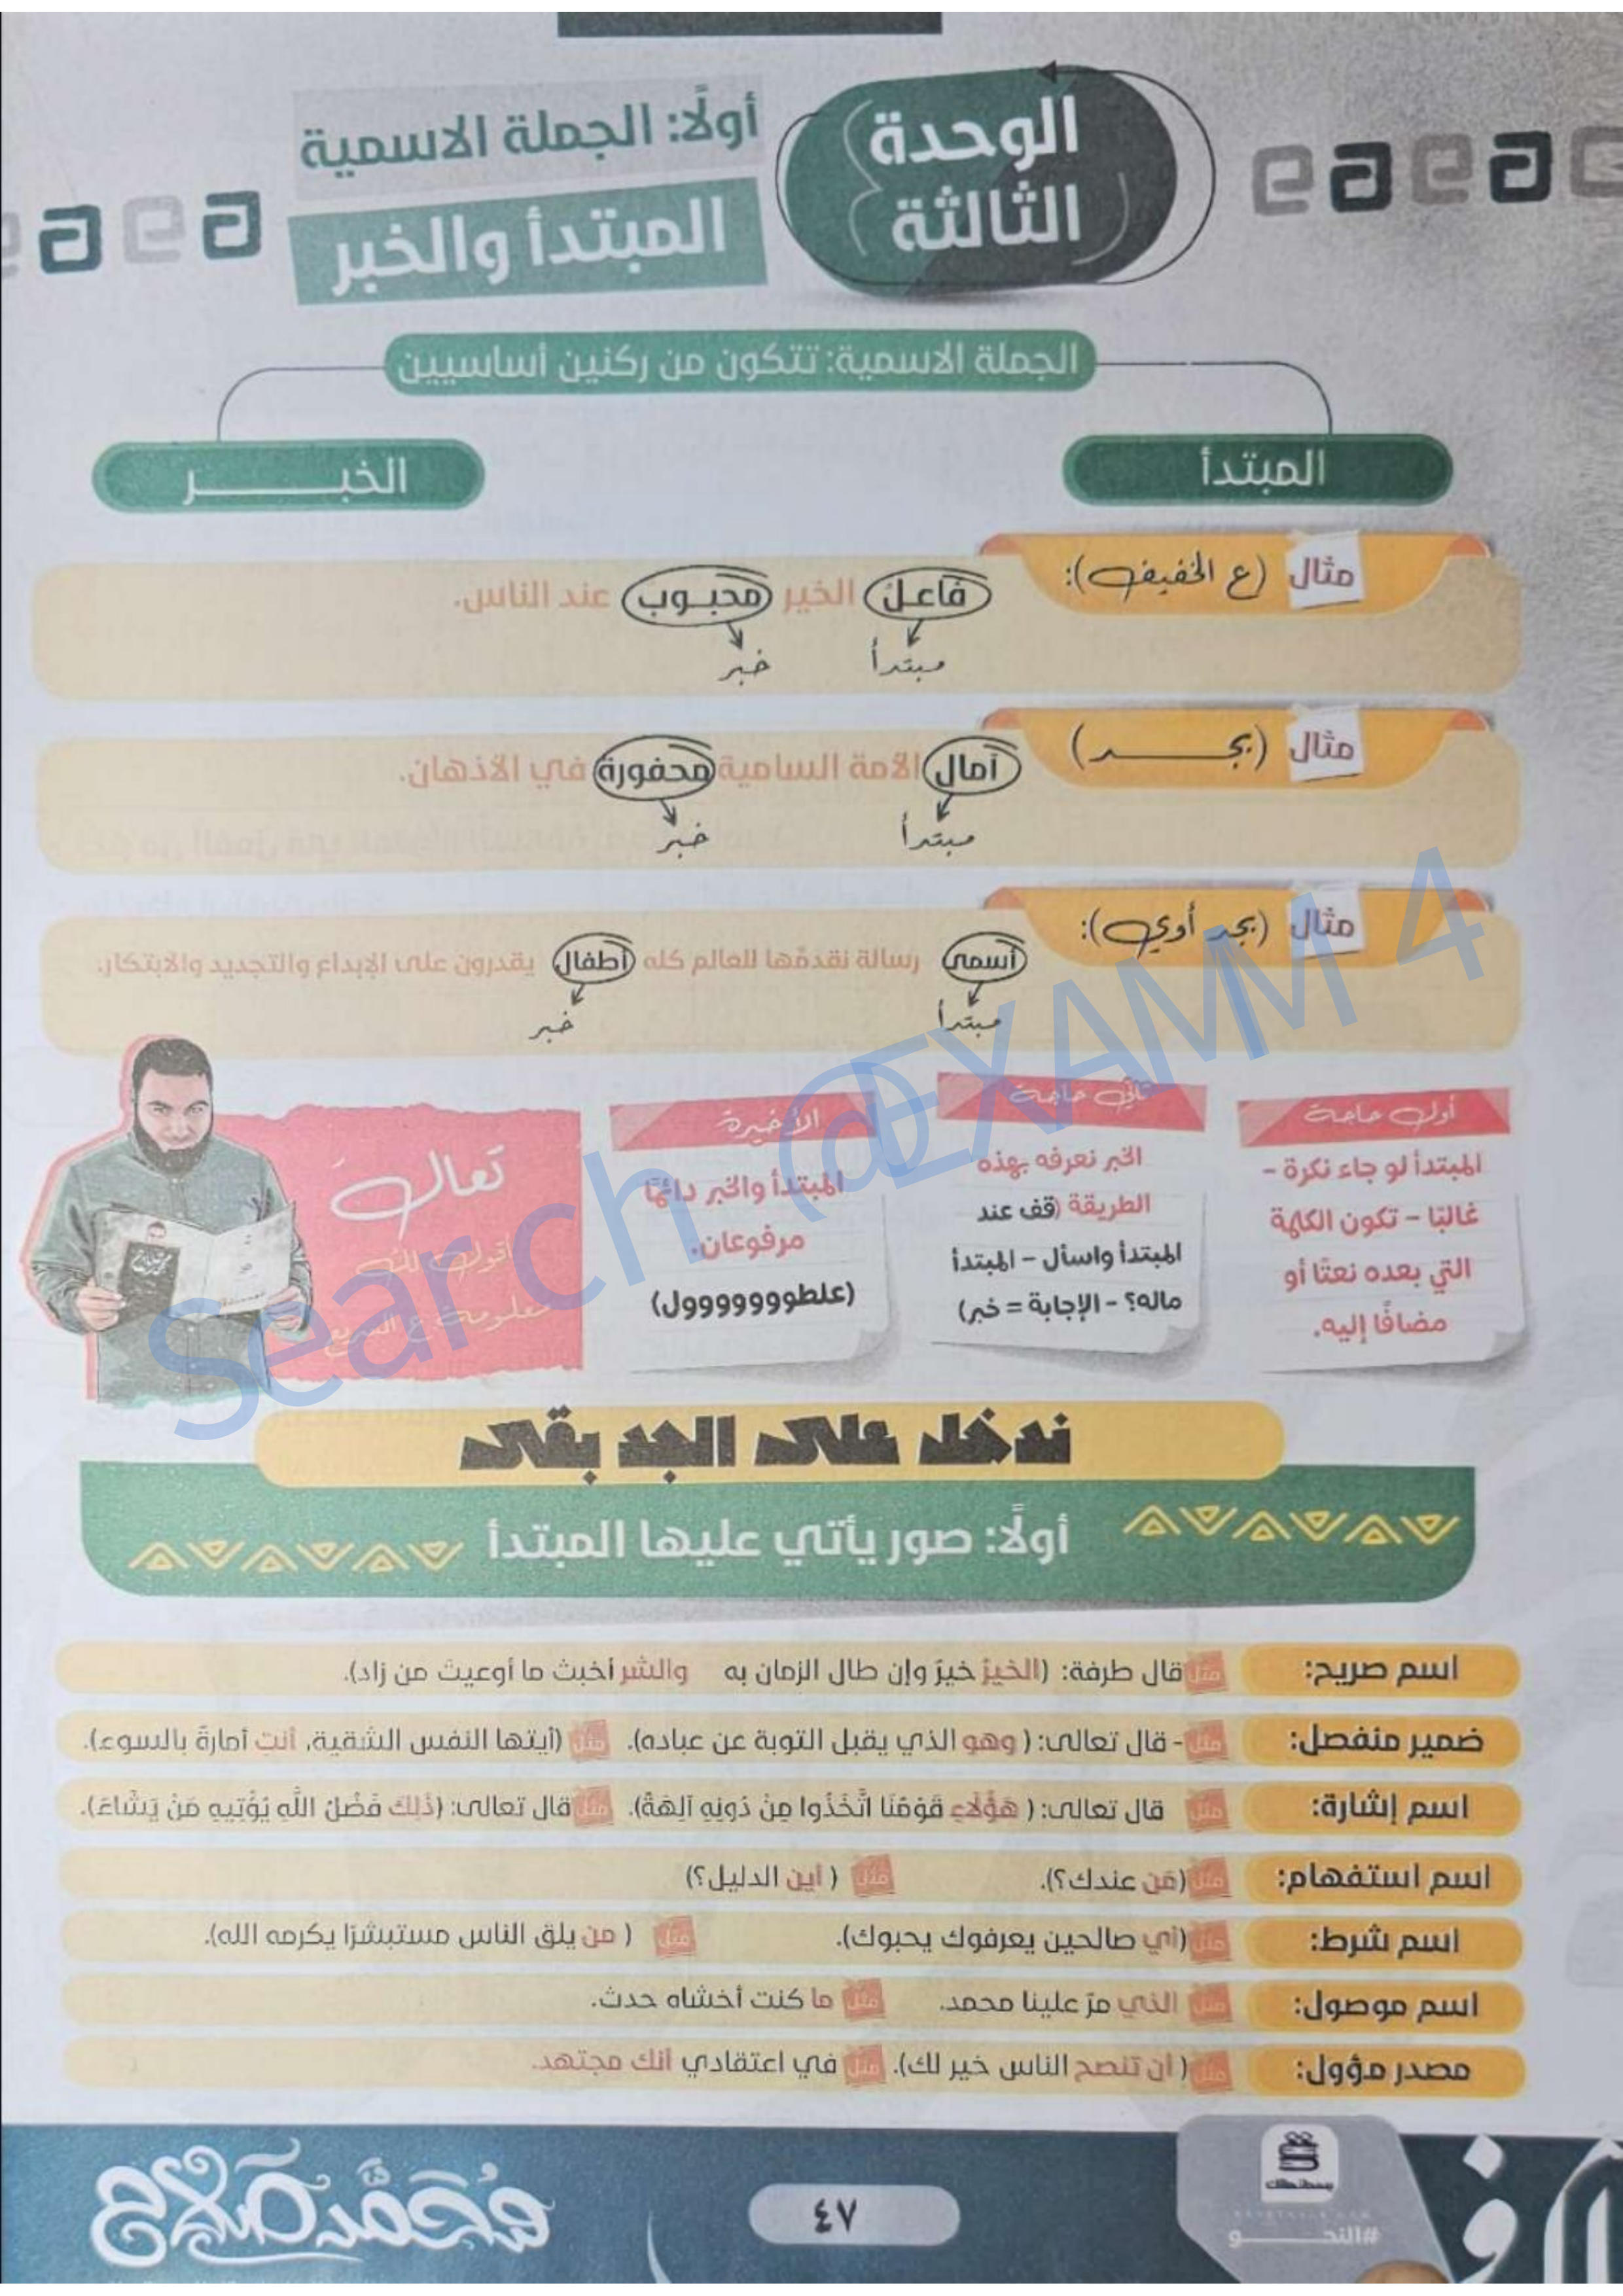 الوحدة
الثالثة
أولًا: الجملة الاسمية
المبتدأ والخبر
الجملة الاسمية: تتكون من ركنين أساسيين
المبتدأ
الخبـــــــر
مثال (ع الخفيف):
فاعل الخير محبوب عند الناس.
مبتدأ خبر
مثال (بجـــــد)
آمال الأمة السامية محفورة في الأذهان.
مبتدأ خبر
مثال (بجد أوي):
أسمى رسالة نقدمها للعالم كله أطفال يقدرون على الإبداع والتجديد والابتكار.
مبتدأ خبر
أول حاجة
المبتدأ لو جاء نكرة –
غالبًا – تكون الكلمة
التي بعده نعتًا أو
مضافًا إليه.
تاني حاجة
الخبر نعرفه بهذه
الطريقة (قف عند
المبتدأ واسأل – المبتدأ
ماله؟ – الإجابة = خبر)
الأخيرة
المبتدأ والخبر دائمًا
مرفوعان.
(علطوووووووول)
تعالَ
أقول لك
معلومة ع السريع
Search @EXAMM 4
ندخل على الجد بقى
أولًا: صور يأتي عليها المبتدأ
اسم صريح: مثل قال طرفة: (الخيرُ خيرٌ وإن طال الزمان به والشر أخبث ما أوعيت من زاد).
ضمير منفصل: مثل - قال تعالى: ( وهو الذي يقبل التوبة عن عباده). مثل (أيتها النفس الشقية، أنتِ أمارةٌ بالسوء).
اسم إشارة: مثل قال تعالى: ( هَؤُلَاءِ قَوْمُنَا اتَّخَذُوا مِنْ دُونِهِ آلِهَةً). مثل قال تعالى: (ذَلِكَ فَضْلُ اللَّهِ يُؤْتِيهِ مَنْ يَشَاءُ).
اسم استفهام: مثل (مَن عندك؟). مثل ( أين الدليل؟)
اسم شرط: مثل (أي صالحين يعرفوك يحبوك). مثل ( من يلق الناس مستبشرًا يكرمه الله).
اسم موصول: مثل الذي مرّ علينا محمد. مثل ما كنت أخشاه حدث.
مصدر مؤول: مثل ( أن تنصح الناس خير لك). مثل في اعتقادي أنك مجتهد.
محمد صلاح
٤٧
#النحـــــو